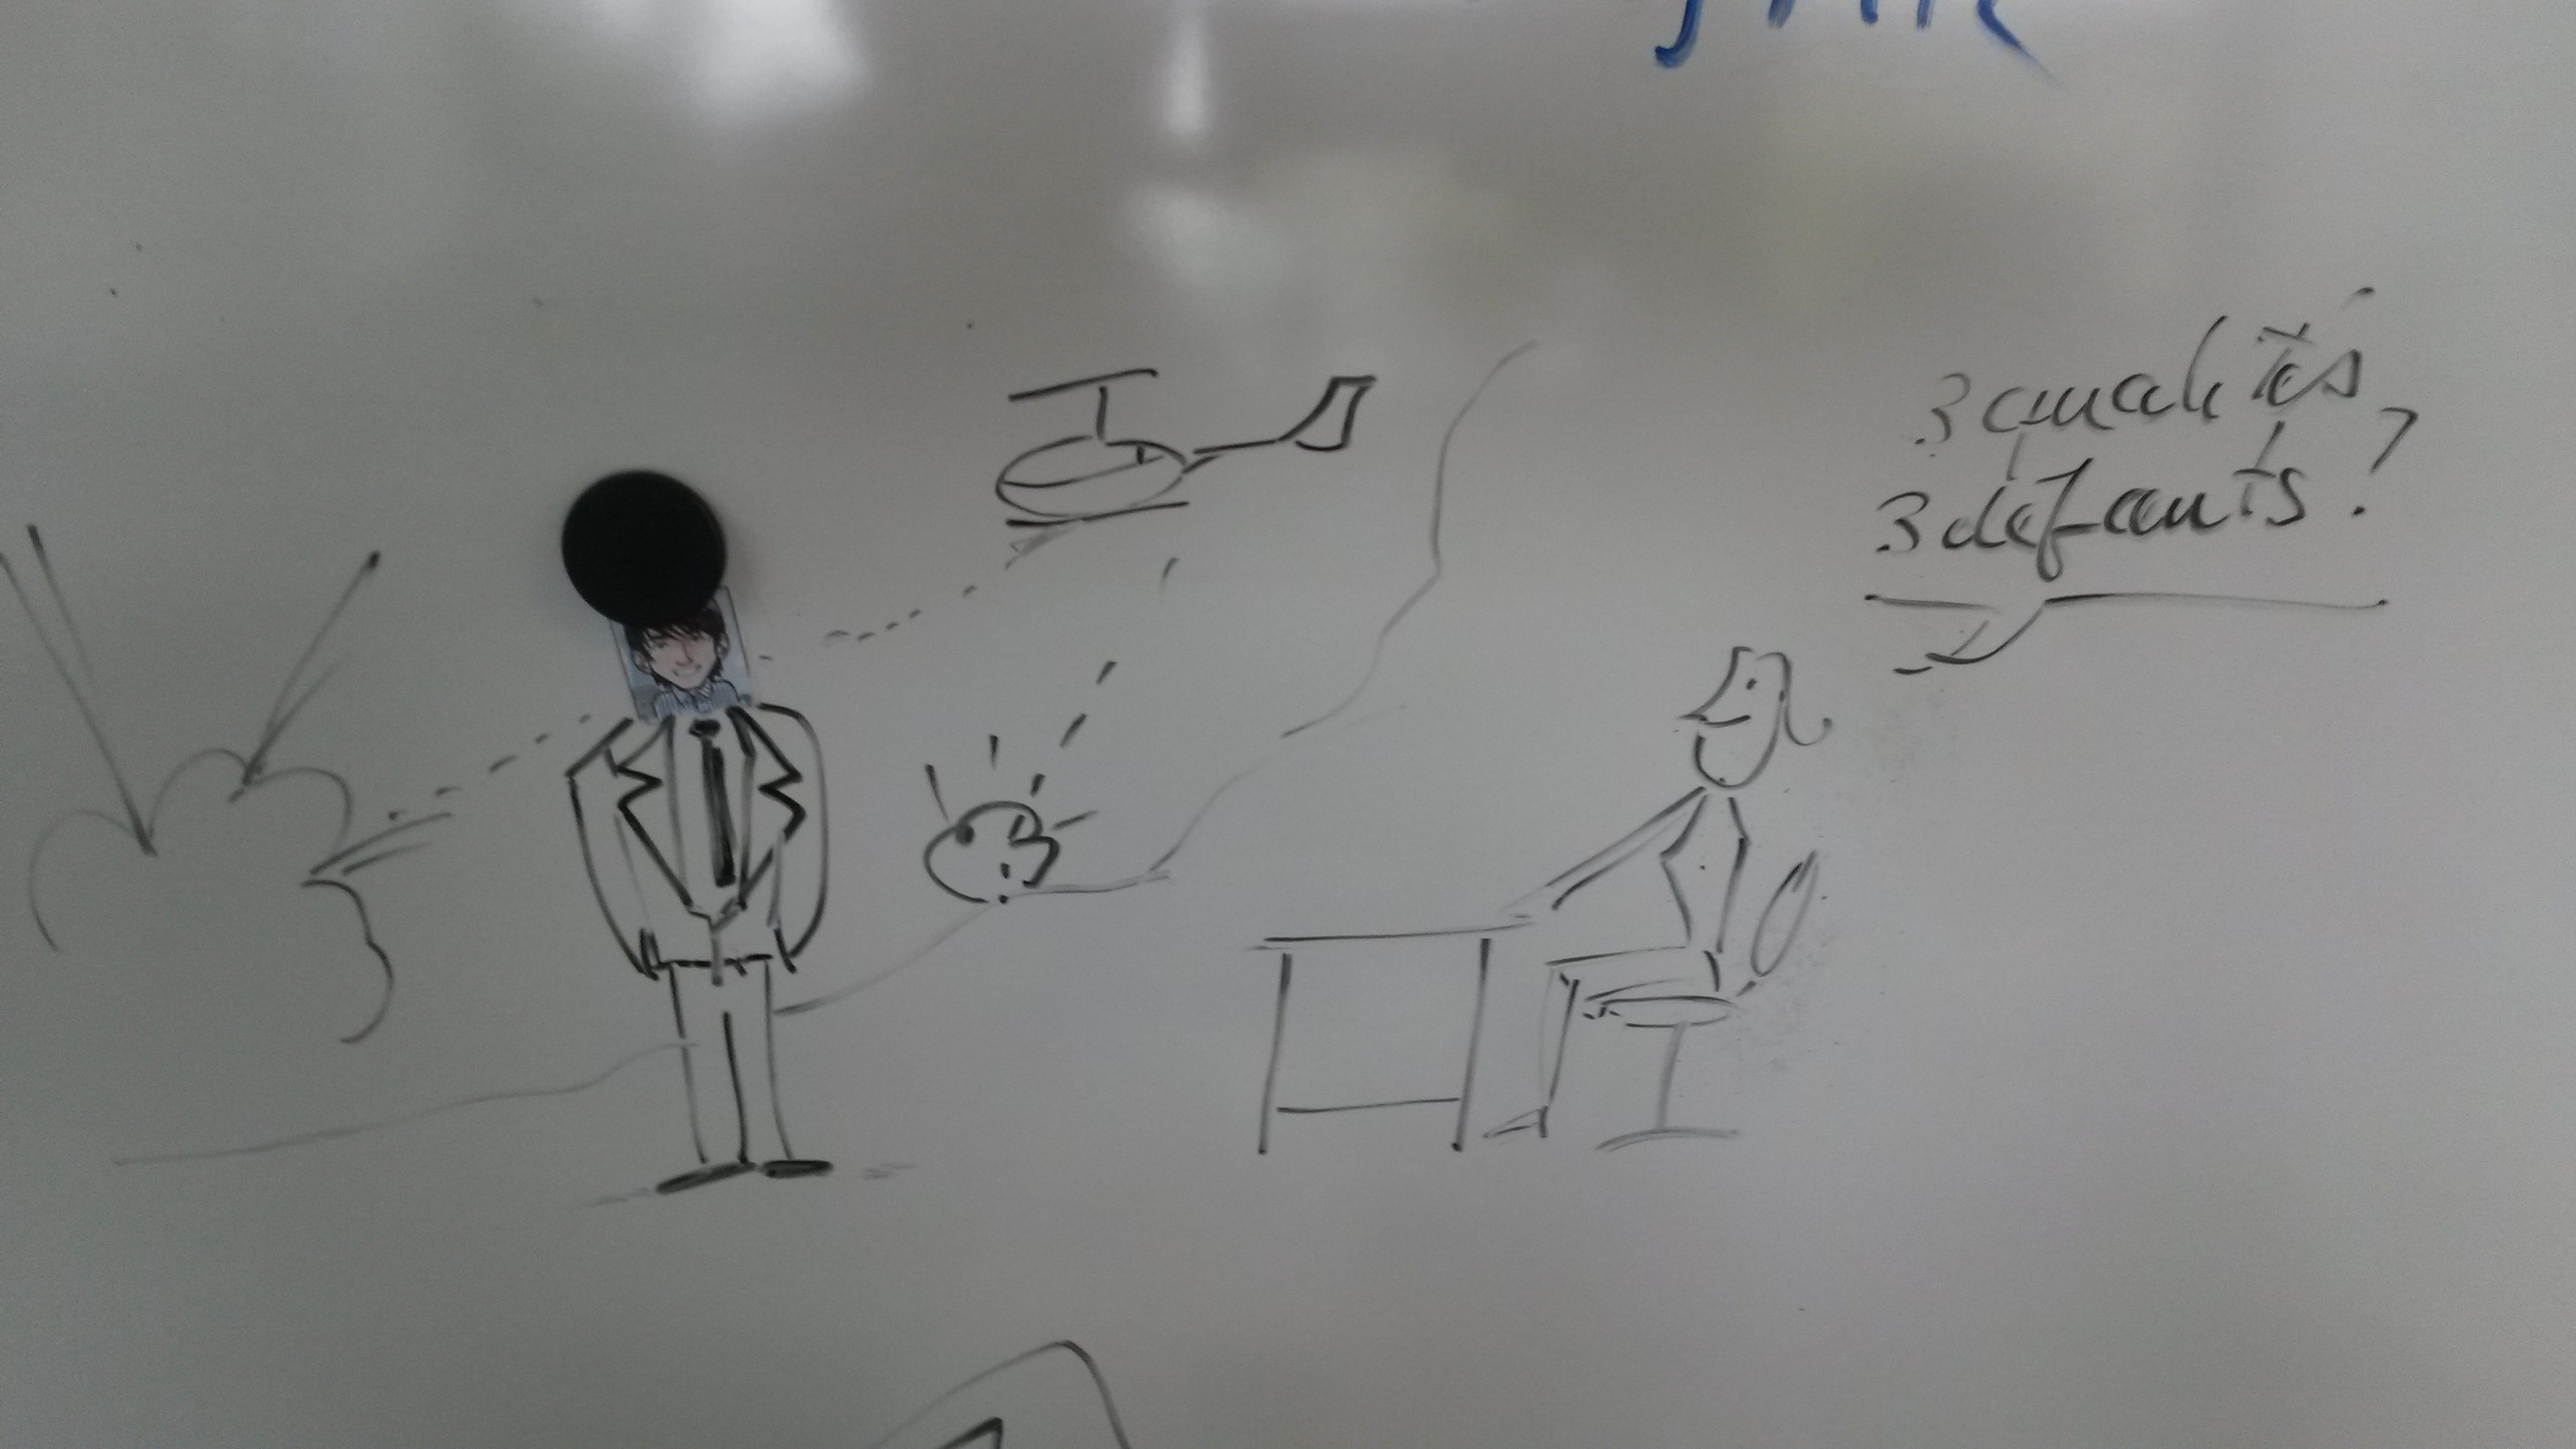 3 qualités
3 défauts ?